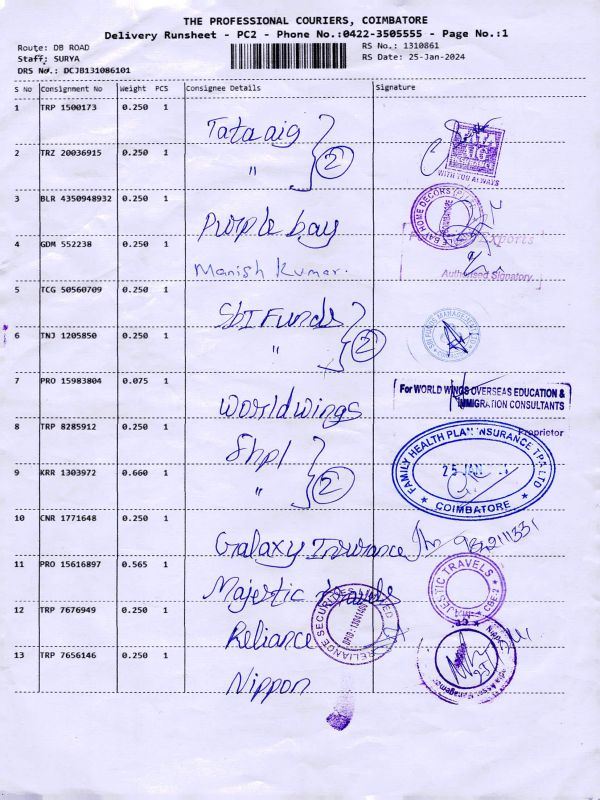 THE PROFESSIONAL COURIERS, COIMBATORE
Delivery Runsheet - PC2 - Phone No.:0422-3505555 - Page No.:1
Route: DB ROAD RS No.: 1310861
Staff: SURYA RS Date: 25-Jan-2024
DRS No.: DCJB131086101
S No Consignment No Weight PCS Consignee Details Signature
1 TRP 1500173 0.250 1 Tata aig
2 TRZ 20036915 0.250 1 " 2
TATA AIG INSURANCE
WITH YOU ALWAYS
3 BLR 4350948932 0.250 1 Purple bay
HOME DECORS
4 GDM 552238 0.250 1 Manish Kumar.
Exports
Authorised Signatory
5 TCG 50560709 0.250 1 SbI Funds
6 TNJ 1205850 0.250 1 " 2
SBI FUNDS MANAGEMENT
7 PRO 15983804 0.075 1 World wings
For WORLD WINGS OVERSEAS EDUCATION &
IMMIGRATION CONSULTANTS
Proprietor
8 TRP 8285912 0.250 1 Fhpl
9 KRR 1303972 0.660 1 " 2
FAMILY HEALTH PLAN INSURANCE TPA LTD
25 JAN
COIMBATORE
10 CNR 1771648 0.250 1 Galaxy Insurance
11 PRO 15616897 0.565 1 Majestic travels
MAJESTIC TRAVELS
CBE-2
12 TRP 7676949 0.250 1 Reliance
RELIANCE SECURITIES LIMITED
13 TRP 7656146 0.250 1 Nippon